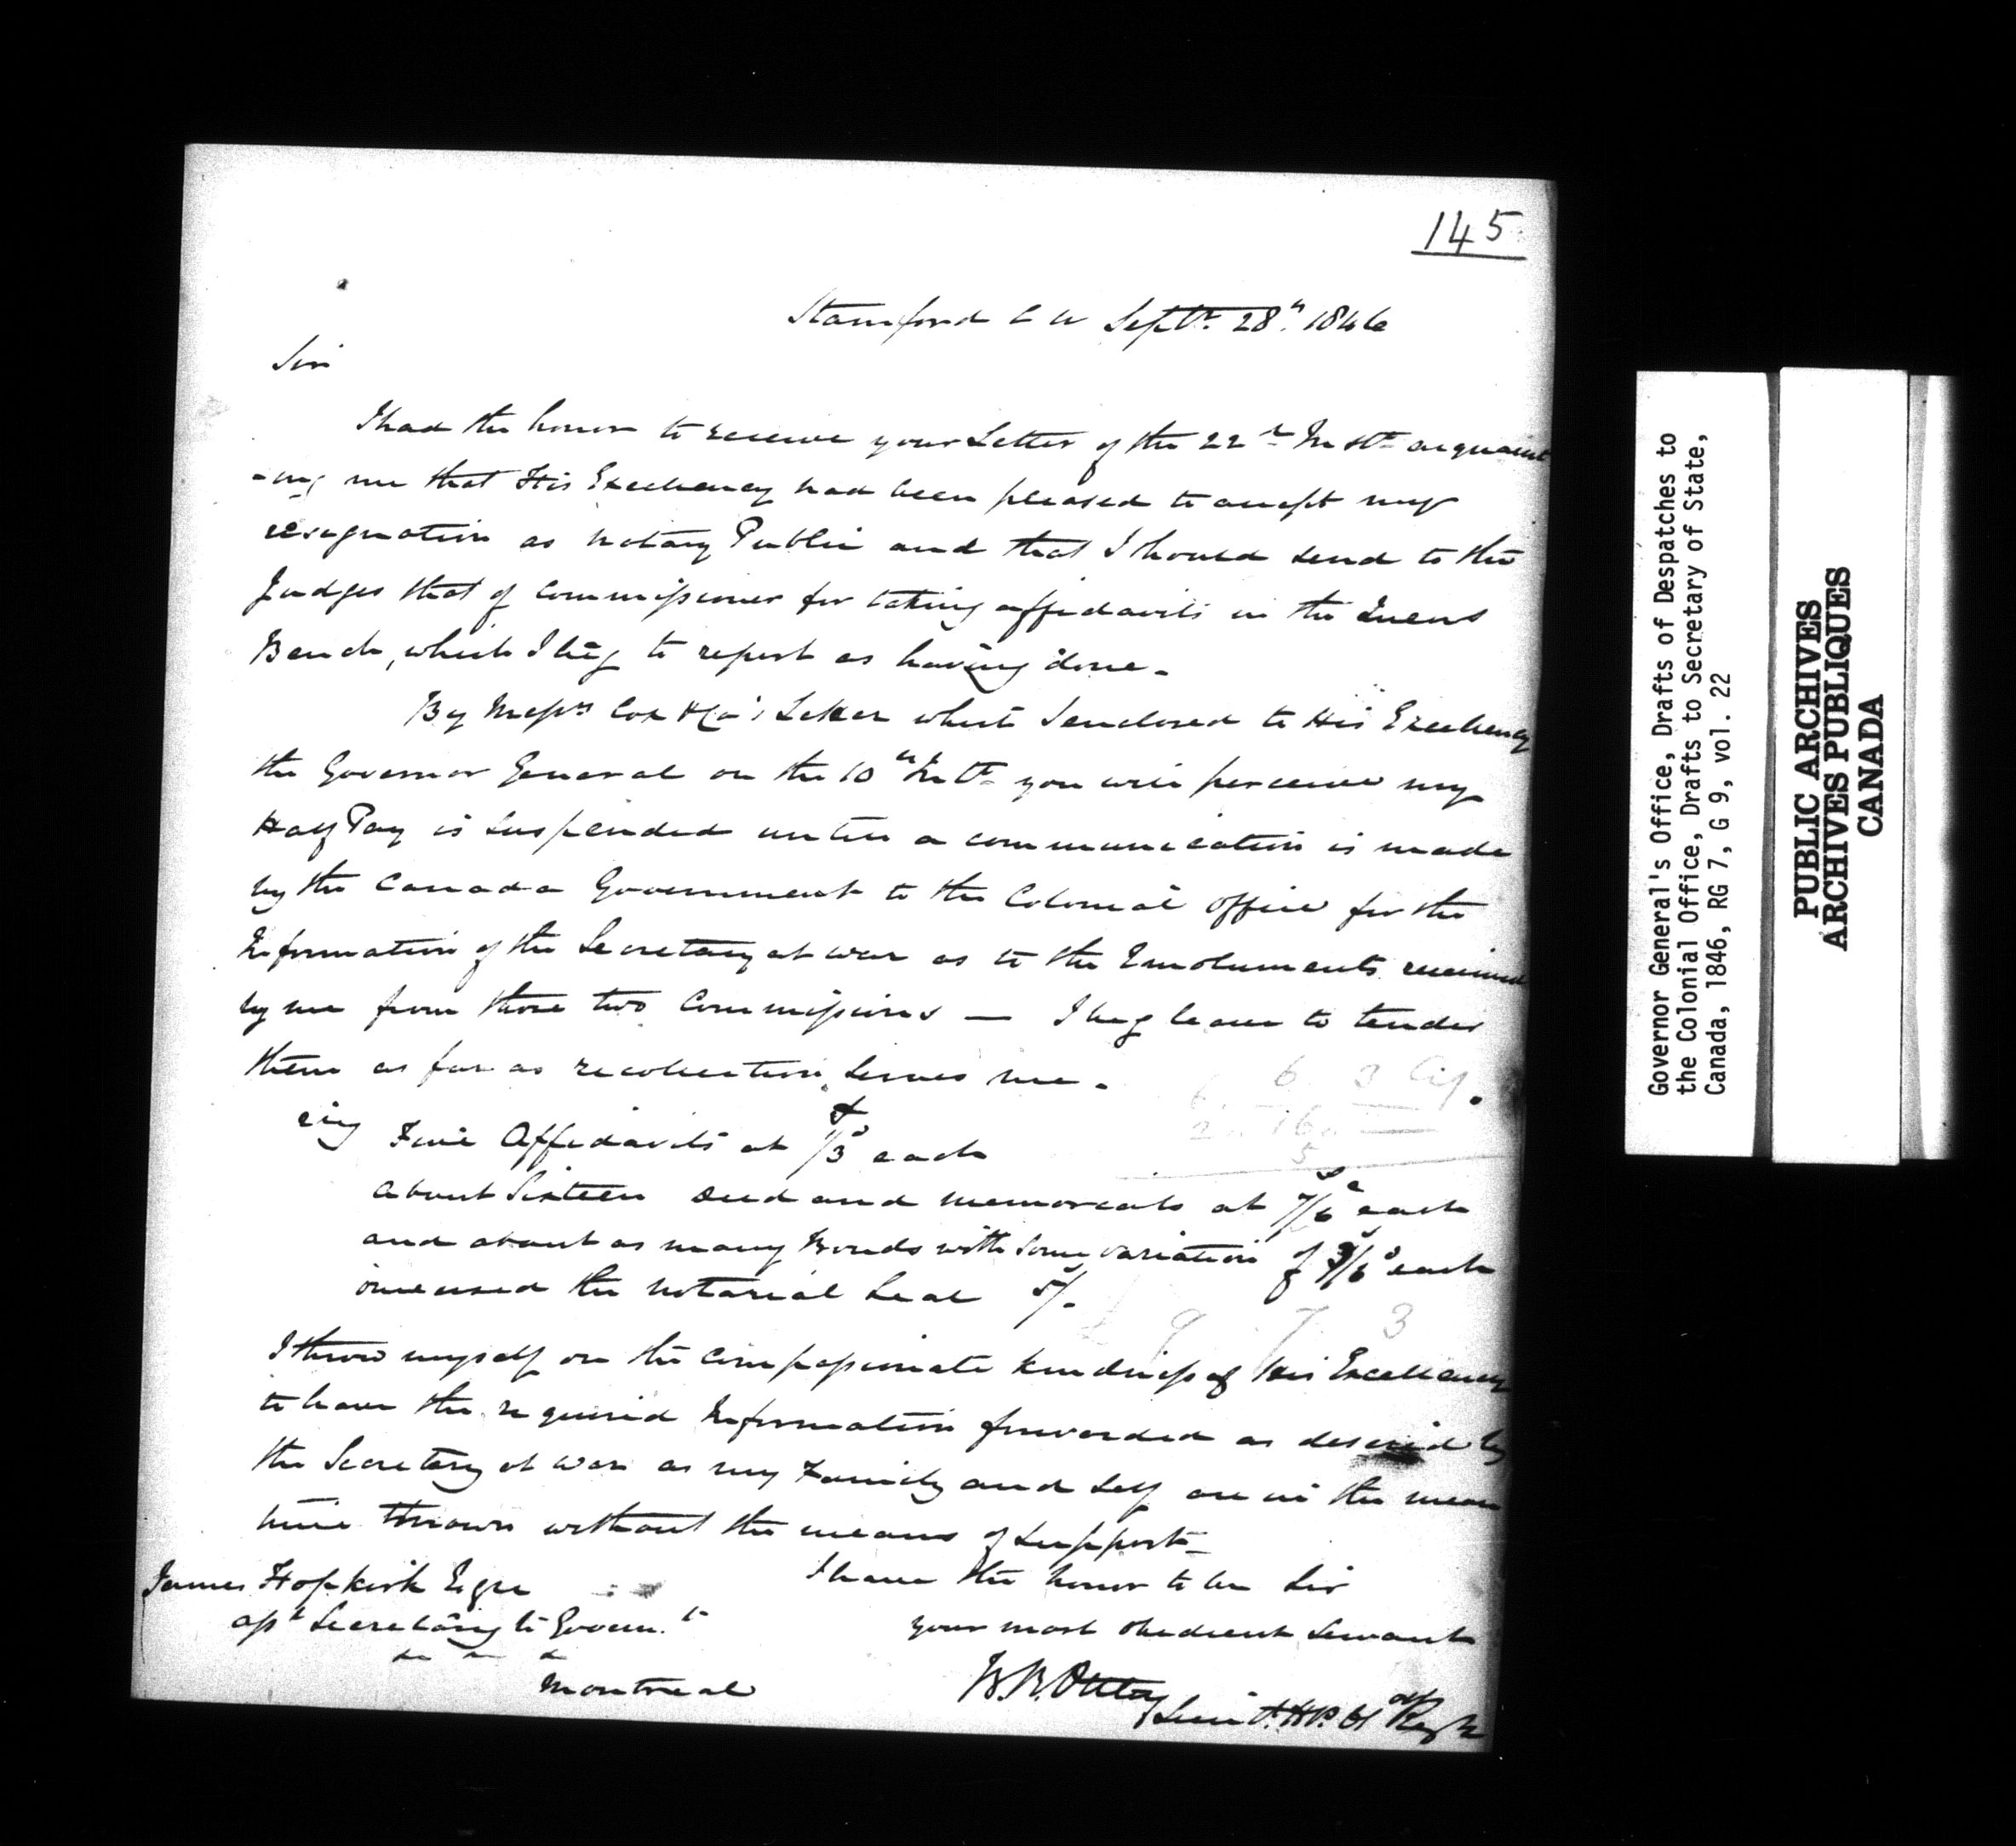 145
Stamford C W Septr. 28th. 1846
Sir
I had the honor to receive your Letter of the 22d Instt acquaint
-ing me that His Excellency had been pleased to accept my
resignation as Notary Public and that I should send to the
Judges that of Commissioner for taking affidavits in the Queens
Bench, which I beg to report as having done.
By Messrs Cox & Co's Letter which I enclosed to His Excellency
the Governor General on the 10th Instt you will perceive my
Half Pay is suspended until a communication is made
by the Canada Government to the Colonial office for the
Information of the Secretary at War as to the Emoluments received
by me from those two Commissions — I beg leave to tender
them as far as recollection serves me.
6 3
16
5
Five Affidavits at 1/3 each
about Sixteen deed and memorials at 7/6 each
and about as many Bonds with some variation of /6 each
once used the Notarial Seal 5/.
£ 9 7 3
I throw myself on the compassionate kindness of His Excellency
to have the required Information forwarded as desired by
the Secretary at War as my Family and Self are in the mean
time thrown without the means of support
I have the honor to be Sir
your most obedient Servant
James Hopkirk Esqre
asst Secretary to Governt.
Montreal
Lieut. H.P. Regt
Governor General's Office, Drafts of Despatches to
the Colonial Office, Drafts to Secretary of State,
Canada, 1846, RG 7, G 9, vol. 22
PUBLIC ARCHIVES
ARCHIVES PUBLIQUES
CANADA